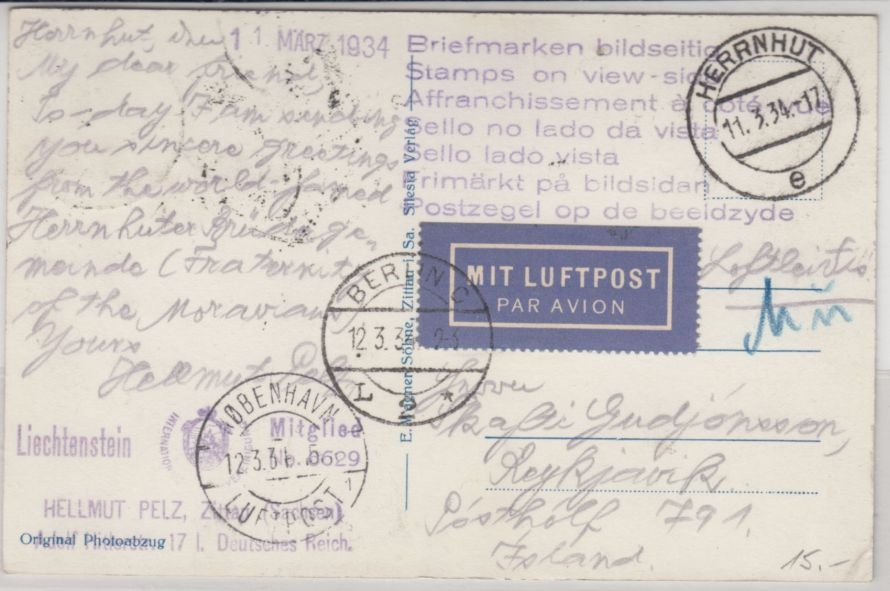 Herrnhut, den 11. MÄRZ 1934
My dear friend,
To-day I am sending
you sincere greetings
from the world-famed
Herrnhuter Brüderge-
meinde (Fraternity
of the Moravians)
Yours
Hellmut Pelz
Liechtenstein
Mitglied
No. 8629
HELLMUT PELZ, Zittau (Sachsen)
17 I. Deutsches Reich.
Original Photoabzug
KØBENHAVN
12.3.34
LUFTPOST
1
BERLIN C
12.3.3
L 2 *
Briefmarken bildseitig
Stamps on view-side
Affranchissement à côté de
Sello no lado da vista
Sello lado vista
Frimärkt på bildsidan
Postzegel op de beeldzyde
HERRNHUT
11.3.34.-17
e
E. Wagner Söhne, Zittau i. Sa. Silesia Verlag
MIT LUFTPOST
PAR AVION
Loftleiðis
Skafti Gudjónsson,
Reykjavik
Pósthólf 791.
Ísland.
15.-